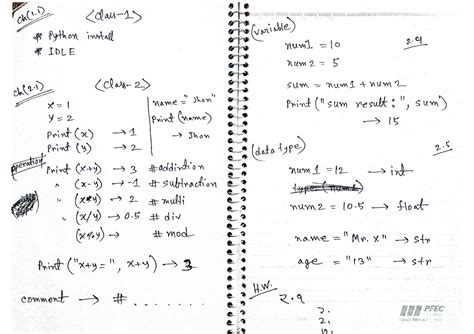 ch(1.1) <Class-1>
* Python install
* IDLE
ch(2.1) <Class-2>
x = 1
y = 2
Print (x) → 1
Print (y) → 2
name = "Jhon"
Print (name)
→ Jhon
operation
Print (x+y) → 3 # addintion
" (x-y) → -1 # subtraction
" (x*y) → 2 # multi
" (x/y) → 0.5 # div
(x%y) → # mod
Print ("x+y=", x+y) → 3
comment → # . . . . . .
(variable)
num1 = 10 2.4
num2 = 5
sum = num1 + num2
Print ("sum result:", sum)
→ 15
(data type) 2.5
num1 = 12 → int
num2 = 10.5 → float
name = "Mr. X" → str
age = "13" → str
H.W.
2.9
PFEC